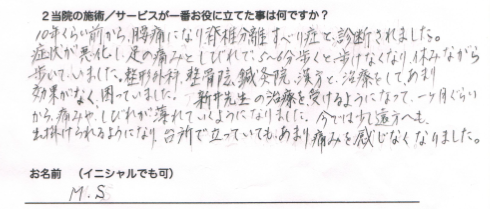 2 当院の施術／サービスが一番お役に立てた事は何ですか？
10年くらい前から、腰痛になり、脊椎分離すべり症と、診断されました。
症状が悪化し、足の痛みとしびれで、5〜6分歩くと歩けなくなり、休みながら
歩いていました。整形外科、整骨院、鍼灸院、漢方と、治療をして、あまり
効果がなく、困っていました。 新井先生の治療を受けるようになって、一ヶ月ぐらい
から、痛みや、しびれが薄れていくようになりました。今では少し遠方へも
出掛けられるようになり、台所で立っていても、あまり痛みを感じなくなりました。
お名前 （イニシャルでも可）
M.S